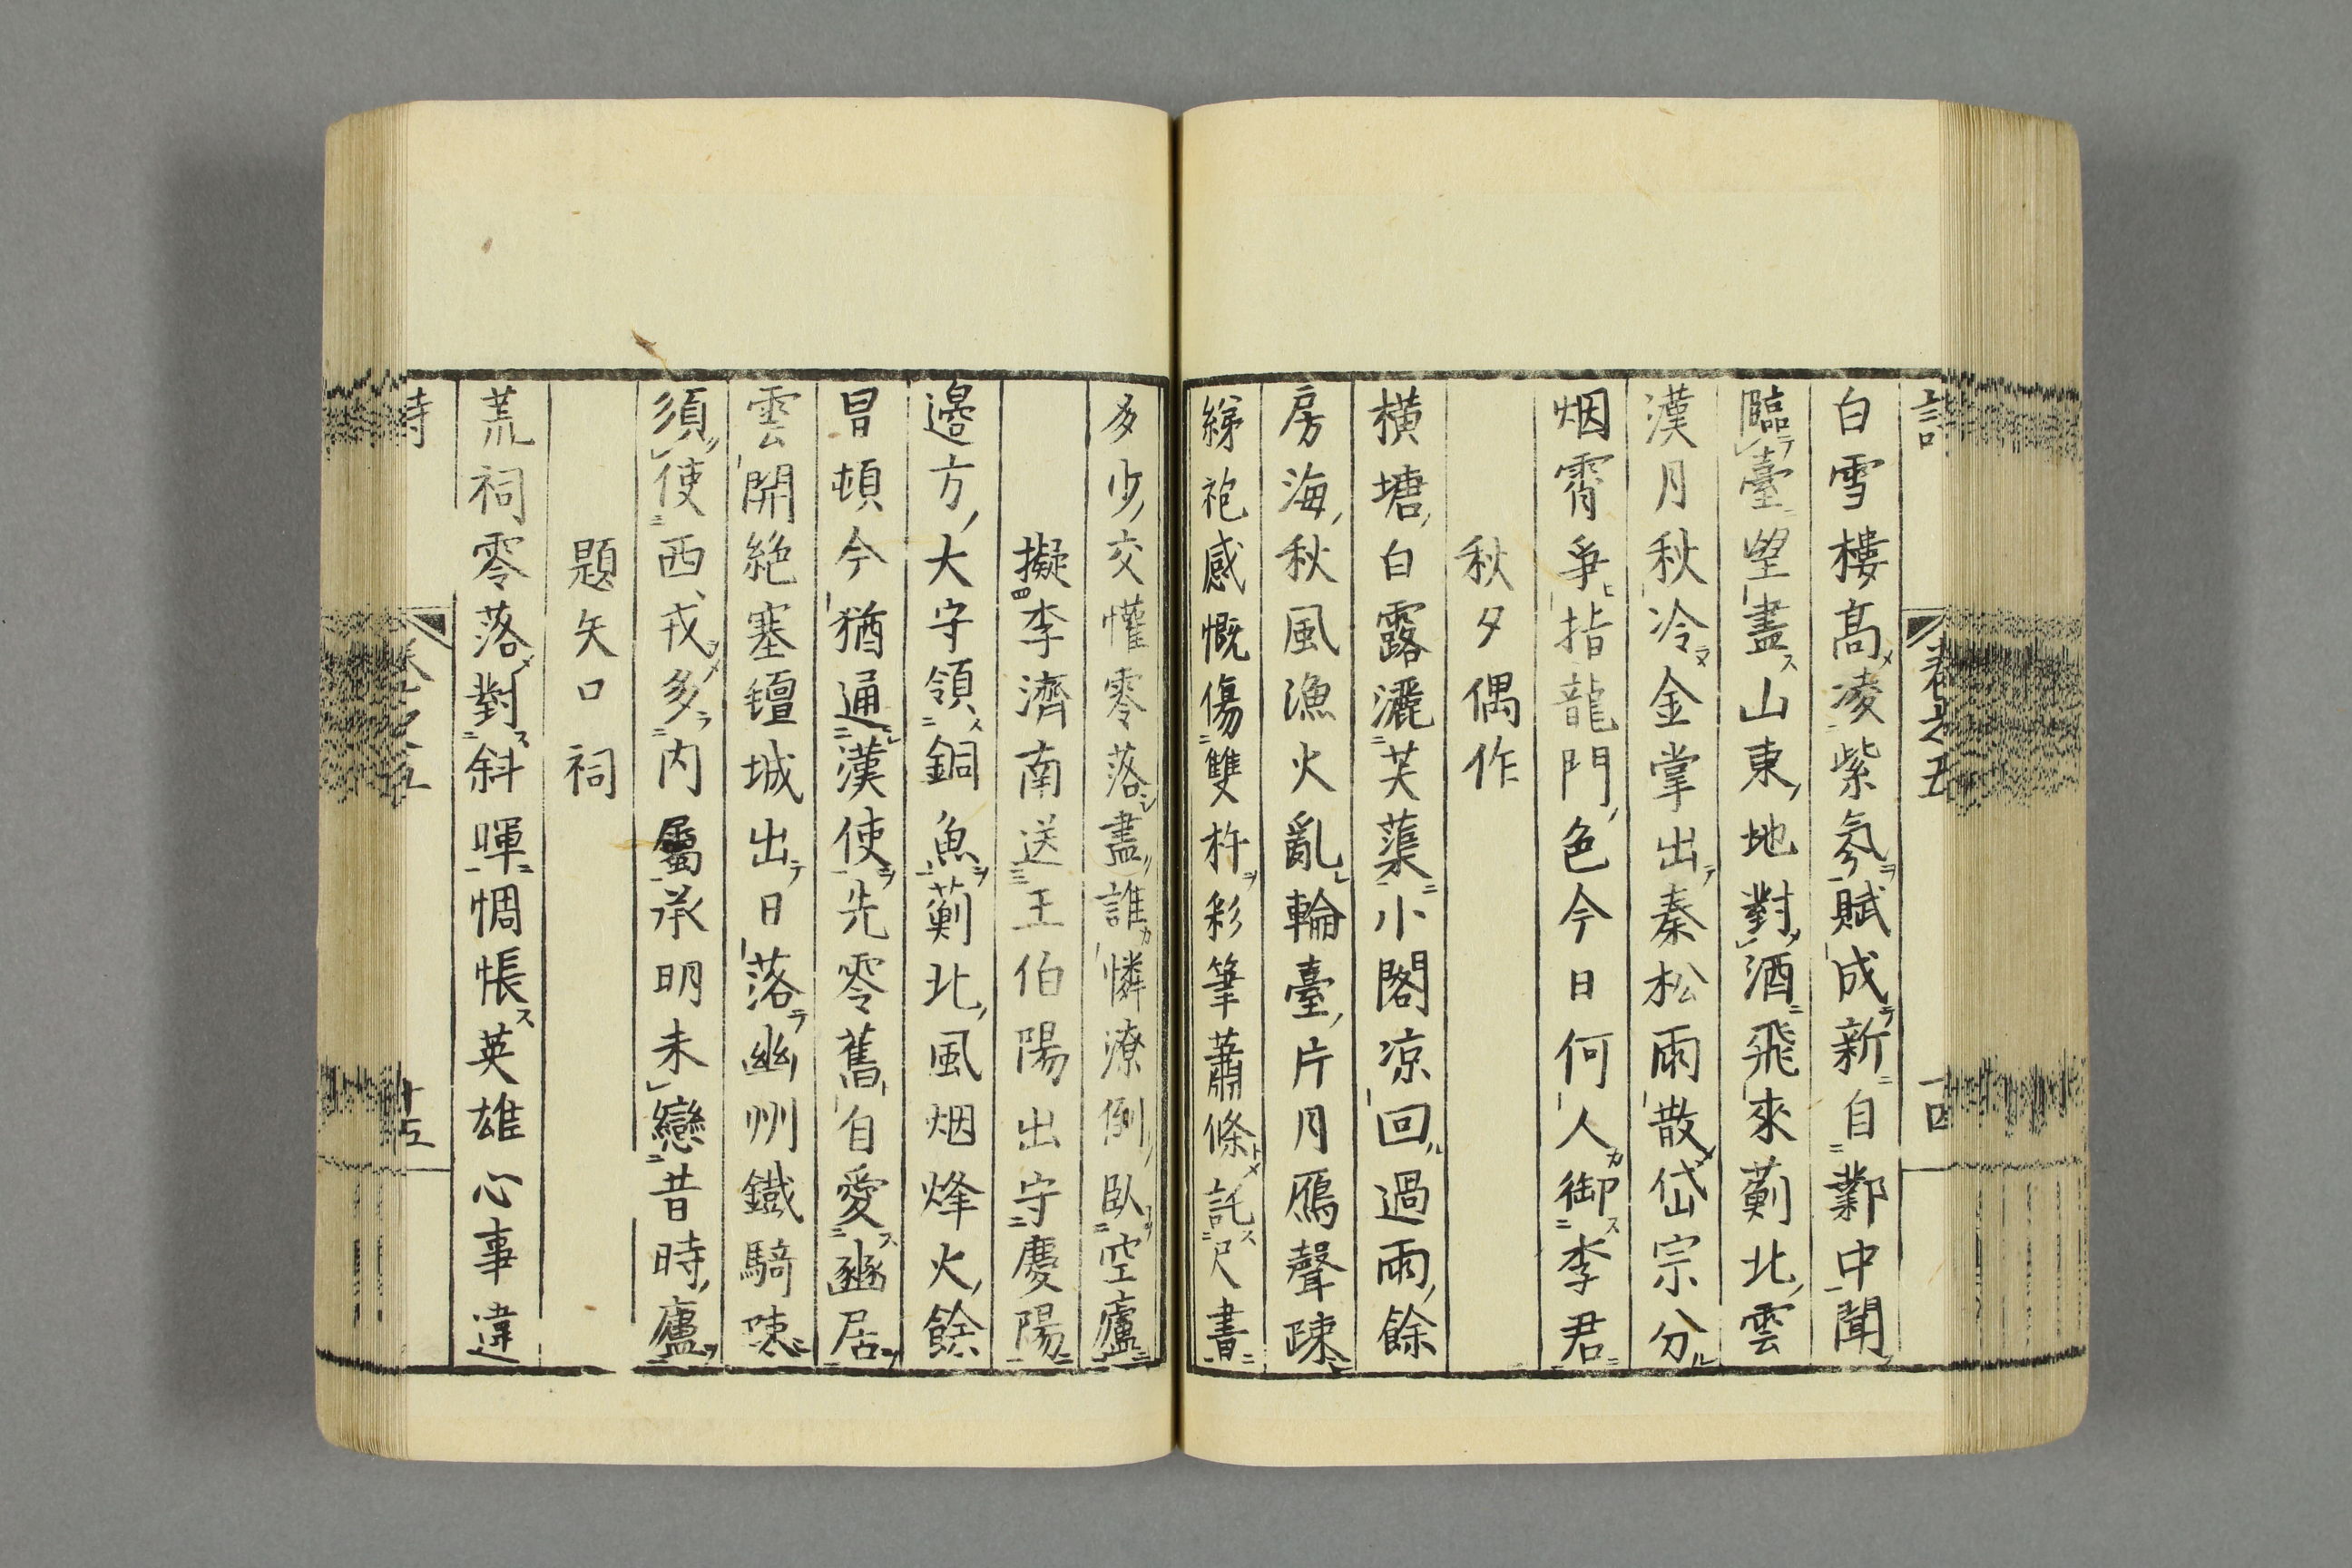 白雪樓高凌紫氛賦成新自鄴中聞
臨臺望盡山東地對酒飛來薊北雲
漢月秋冷金掌出秦松雨散岱宗分
烟霄爭指龍門色今日何人御李君
秋夕偶作
橫塘白露灑芙蕖小閣凉回過雨餘
房海秋風漁火亂輪臺片月鴈聲疎
綈袍感慨傷雙杵彩筆蕭條託尺書
多少交懽零落盡誰憐潦倒臥空廬
擬李濟南送王伯陽出守慶陽
邊方大守領銅魚薊北風烟烽火餘
冒頓今猶通漢使先零舊自愛豳居
雲開絶塞鐔城出日落幽州鐵騎疎
須使西戎多内屬承明未戀昔時廬
題矢口祠
荒祠零落對斜暉惆悵英雄心事違
詩
卷之五
十四
詩
卷之五
十五